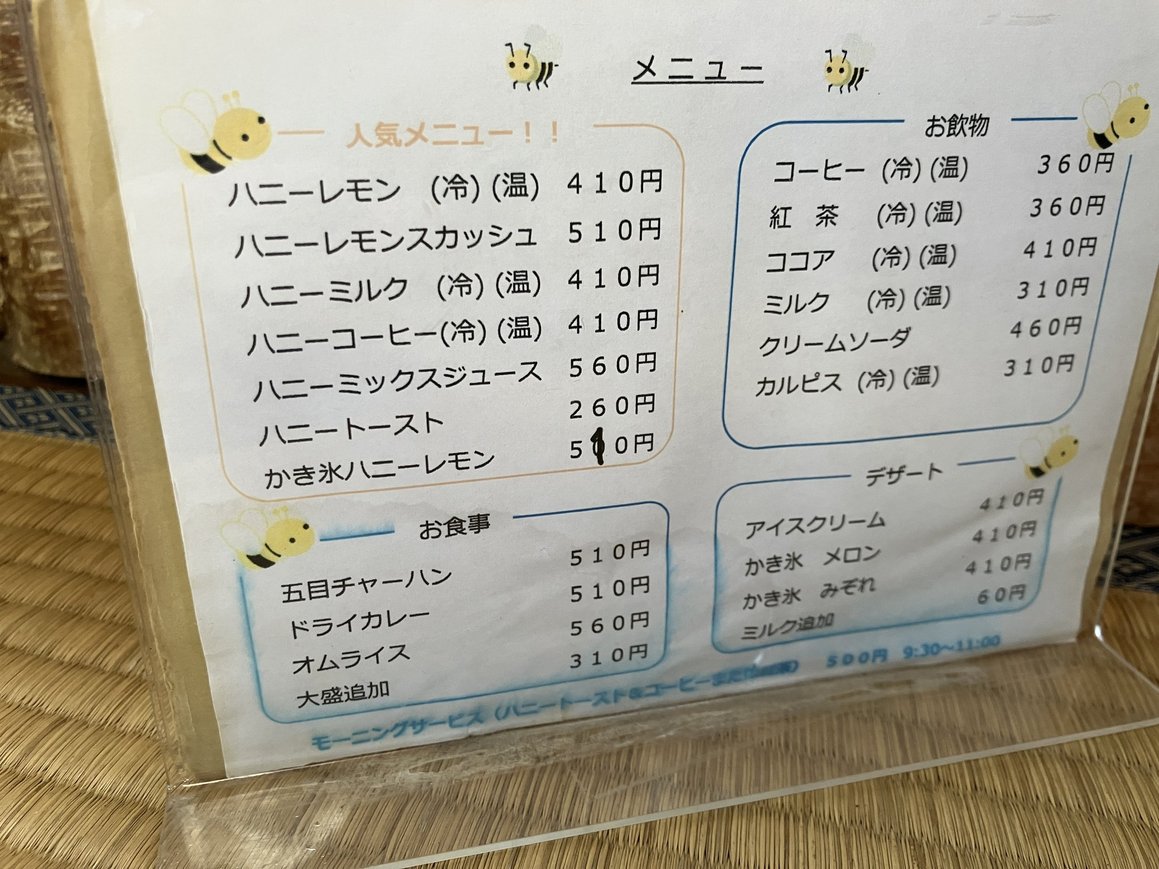 メニュー
人気メニュー！！
ハニーレモン (冷)(温) 410円
ハニーレモンスカッシュ 510円
ハニーミルク (冷)(温) 410円
ハニーコーヒー(冷)(温) 410円
ハニーミックスジュース 560円
ハニートースト 260円
かき氷ハニーレモン 510円
お飲物
コーヒー (冷)(温) 360円
紅 茶 (冷)(温) 360円
ココア (冷)(温) 410円
ミルク (冷)(温) 310円
クリームソーダ 460円
カルピス (冷)(温) 310円
お食事
五目チャーハン 510円
ドライカレー 510円
オムライス 560円
大盛追加 310円
デザート
アイスクリーム 410円
かき氷 メロン 410円
かき氷 みぞれ 410円
ミルク追加 60円
モーニングサービス（ハニートースト&コーヒーまたは 500円 9:30～11:00